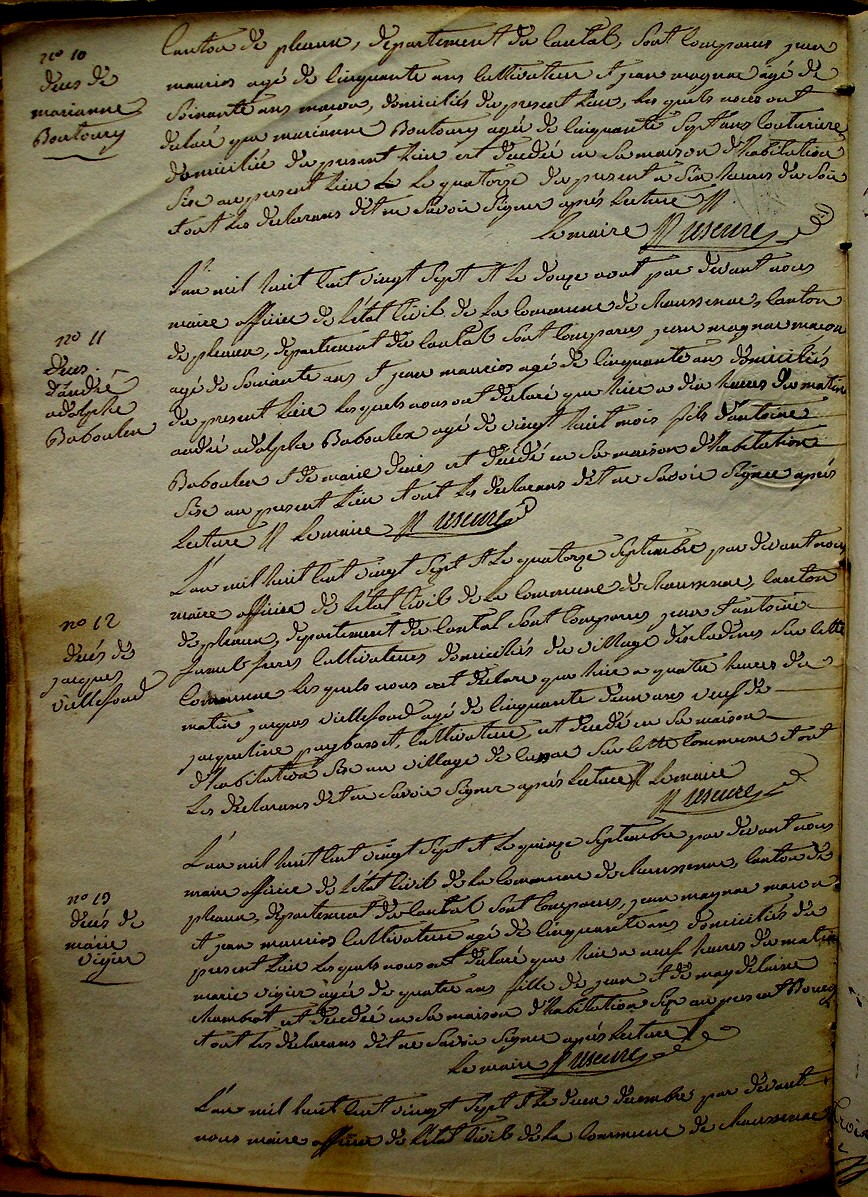 n° 10
deces de
marianne
Boutoury
Canton de pleaux, departement du Cantal, sont Comparus jean
maurios agé de Cinquante ans Cultivateur et jean magnac agé de
Soixante ans macon, domiciliés du present Lieu, Les quels nous ont
declaré que marianne Boutoury agée de Cinquante Sept ans Couturiere
domiciliée du present Lieu est decedée en Sa maison d'habitation
Sise au present Lieu Le quatorze du present a Six heures du Soir
et ont Les declarans dit ne Savoir Signer après Lecture //
Le maire
n° 11
deces
d'andré
adolphe
Baboulex
L'an mil huit Cent vingt Sept et Le douze aout par devant nous
maire officier de L'état Civil de La Commune de Chaussenac, Canton
de pleaux, departement du Cantal Sont Comparus jean magnac macon
agé de Soixante ans et jean maurios agé de Cinquante ans domiciliés
du present Lieu Les quels nous ont declaré que hier a dix heures du matin
andré adolphe Baboulex agé de vingt huit mois fils d'antoine
Baboulex et de marie denis est décédé en Sa maison d'habitation
Sise au present Lieu et ont Les declarans dit ne Savoir Signer après
Lecture // Le maire
n° 12
decés de
jacques
vieillefond
L'an mil huit Cent vingt Sept et Le quatorze Septembre par devant nous
maire officier de L'état Civil de La Commune de Chaussenac, Canton
de pleaux, departement du Cantal Sont Comparus jean et antoine
freres Cultivateurs domiciliés du village Sur Cette
Commune Les quels nous ont declaré que hier a quatre heures du
matin jacques vieillefond agé de Cinquante deux ans veuf de
jacqueline puybasset, Cultivateur, est decedé en Sa maison
d'habitation Sise au village de Sur Cette Commune et ont
Les declarans dit ne Savoir Signer après Lecture // Le maire
n° 13
decés de
marie
vigier
L'an mil huit Cent vingt Sept et Le quinze Septembre par devant nous
maire officier de L'état Civil de La Commune de Chaussenac, Canton de
pleaux, departement du Cantal Sont Comparus, jean magnac macon
et jean maurios Cultivateur agé de Cinquante ans domiciliés du
present Lieu Les quels nous ont declaré que hier a neuf heures du matin
marie vigier agée de quatre ans fille de jean et de magdelaine
Chambot est decedée en Sa maison d'habitation Sise au present Bourg
et ont Les declarans dit ne Savoir Signer après Lecture //
Le maire
L'an mil huit Cent vingt Sept et Le deux decembre par devant
nous maire officier de L'état Civil de La Commune de Chaussenac